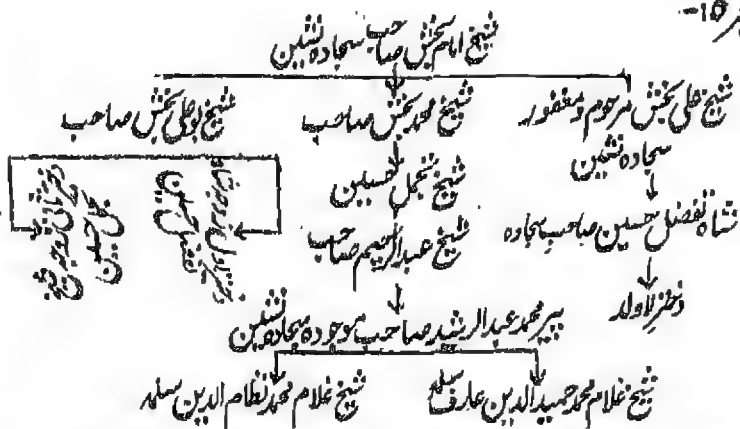 نمبر 10-
شیخ امام بخش صاحب سجادہ نشین
شیخ علی بخش مرحوم و مغفور
سجادہ نشین
شاہ تفضل حسین صاحب سجادہ
دختر لاولد
شیخ محمد بخش صاحب
شیخ تجمل حسین
شیخ عبدالرحیم صاحب
شیخ بو علی بخش صاحب
دختر اول زوجہ شاہ
تفضل حسین
دختر ثانی زوجہ شیخ
تجمل حسین
پیر محمد عبدالرشید صاحب موجودہ سجادہ نشین
شیخ غلام محمد حمید الدین عارف سلمہ
شیخ غلام محمد نظام الدین سلمہ